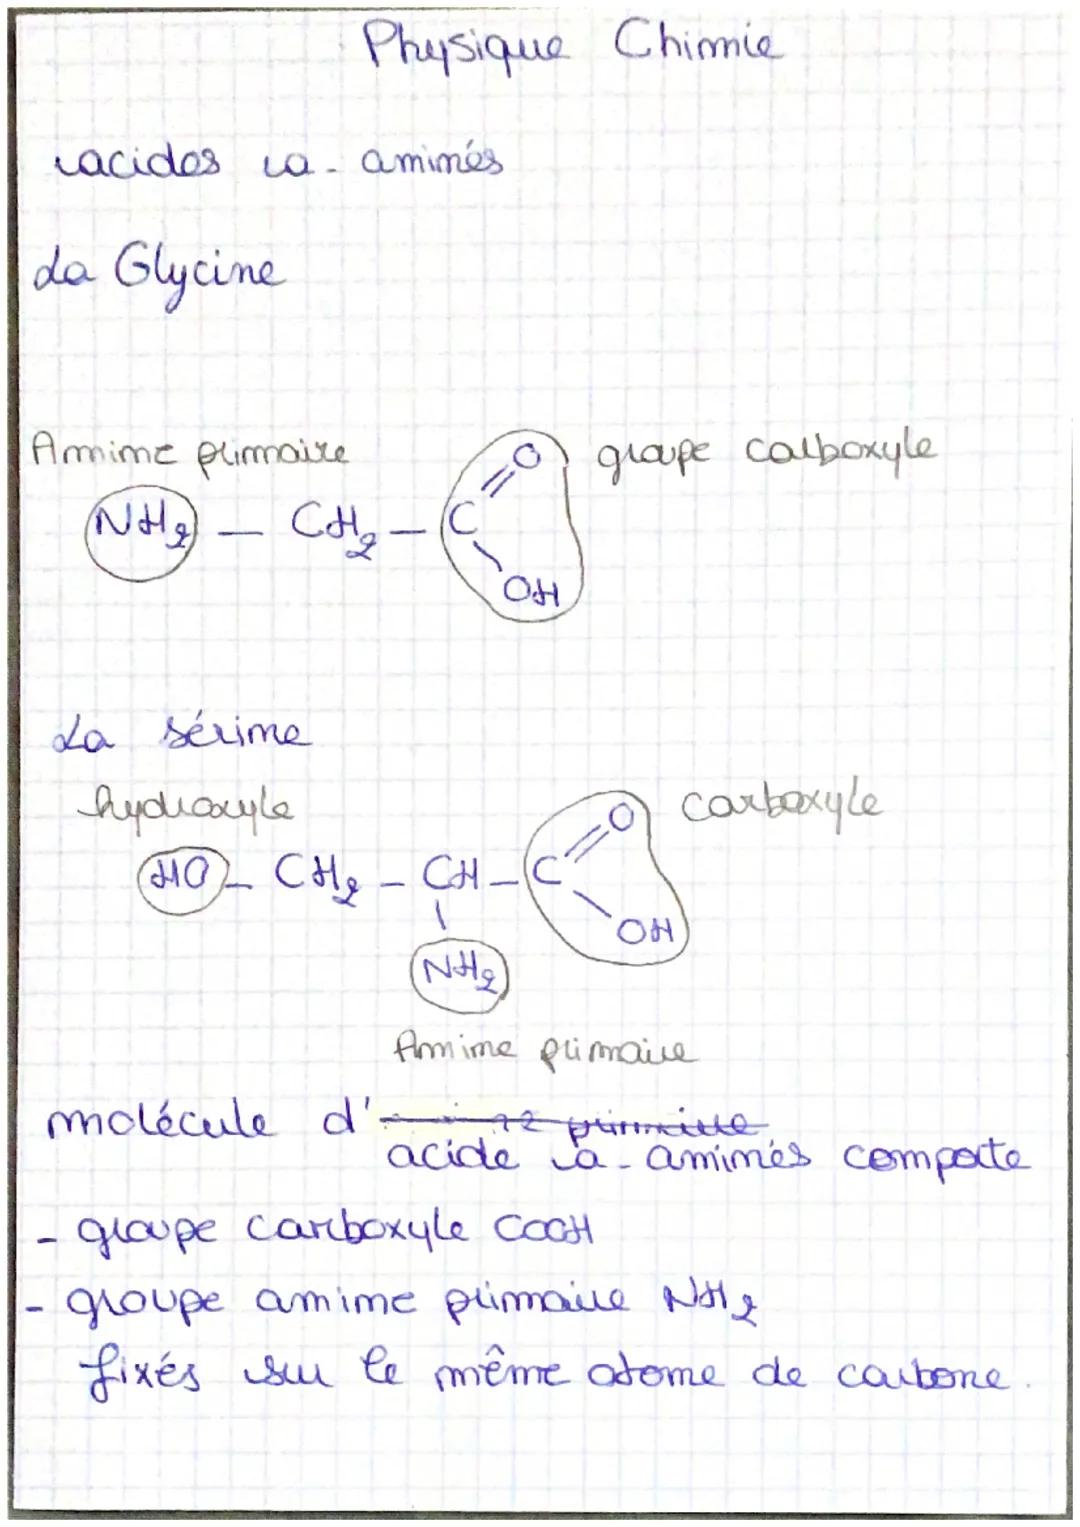 Physique Chimie
acides a - aminés
La Glycine
Amine primaire
groupe carboxyle
NH2 — CH2 — C
O
OH
La sérine
hydroxyle
carboxyle
HO — CH2 — CH — C
O
OH
NH2
Amine primaire
molécule d' primaire
acide a - aminés comporte
- groupe carboxyle COOH
- groupe amine primaire NH2
fixés sur le même atome de carbone.